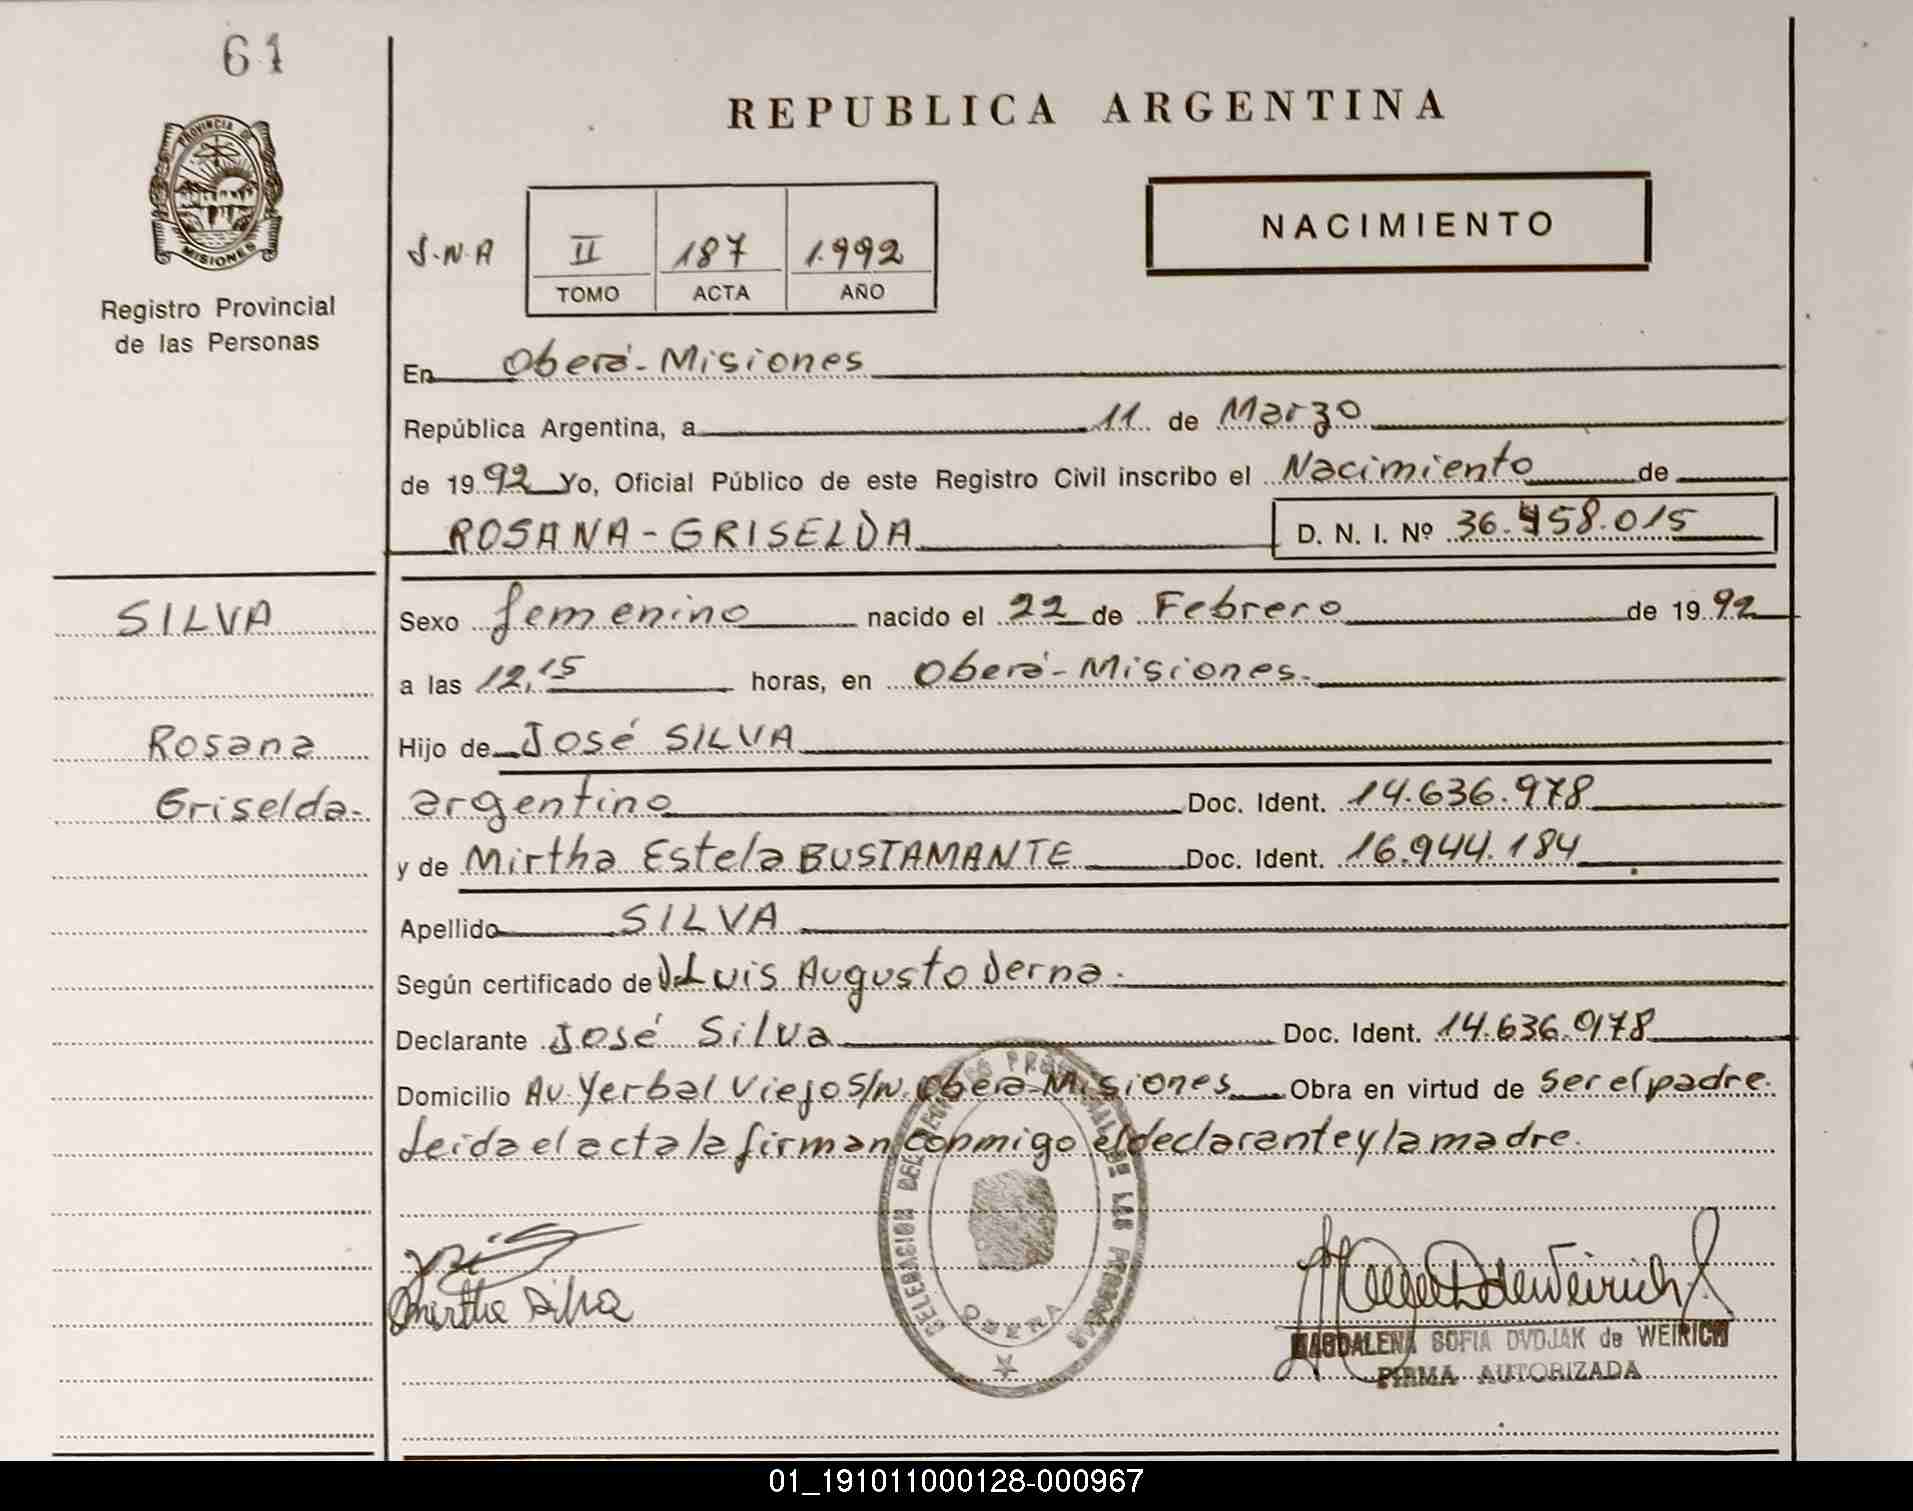 61
PROVINCIA DE
MISIONES
Registro Provincial
de las Personas
REPUBLICA ARGENTINA
NACIMIENTO
S.N.A
II 187 1.992
TOMO ACTA AÑO
En Oberá - Misiones
República Argentina, a 11 de Marzo
de 19 92 Yo, Oficial Público de este Registro Civil inscribo el Nacimiento de
ROSANA - GRISELDA D. N. I. Nº 36.458.015
SILVA
Rosana
Griselda.
Sexo femenino nacido el 22 de Febrero de 19 92
a las 12,15 horas, en Oberá - Misiones.
Hijo de José SILVA
argentino Doc. Ident. 14.636.978
y de Mirtha Estela BUSTAMANTE Doc. Ident. 16.944.184
Apellido SILVA
Según certificado de Luis Augusto
Declarante José Silva Doc. Ident. 14.636.978
Domicilio Av. Yerbal Viejo S/N. Oberá - Misiones Obra en virtud de Ser el padre.
Leida el acta la firman conmigo el declarante y la madre.
DELEGACION DEL REGISTRO PROVINCIAL DE LAS PERSONAS
OBERA
Mirtha Silva
MAGDALENA SOFIA DVOJAK de WEIRICH
FIRMA AUTORIZADA
01_191011000128-000967